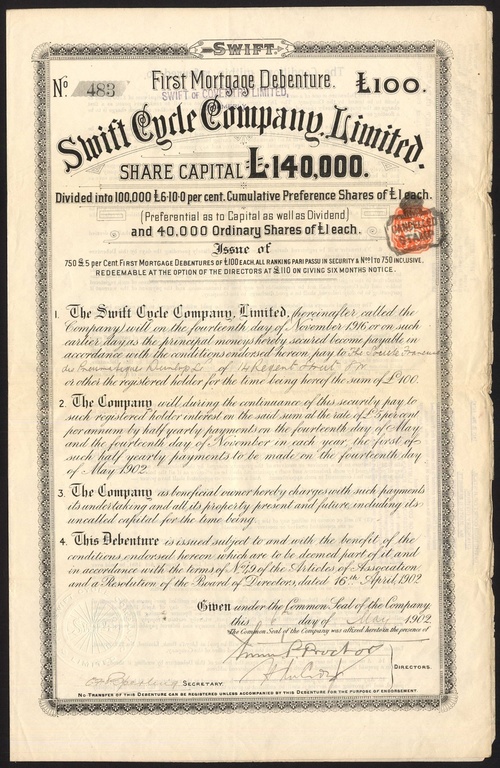 SWIFT.
No. 483 First Mortgage Debenture. £100.
SWIFT OF COVENTRY LIMITED,
Swift Cycle Company, Limited.
SHARE CAPITAL £.140,000.
Divided into 100,000 £6-10-0 per cent. Cumulative Preference Shares of £1 each.
(Preferential as to Capital as well as Dividend)
and 40,000 Ordinary Shares of £1 each.
Issue of
750 £5 per Cent. First Mortgage Debentures of £100 each, all ranking pari passu in security & Nos 1 to 750 inclusive.
REDEEMABLE AT THE OPTION OF THE DIRECTORS AT £110 ON GIVING SIX MONTHS NOTICE.
1. The Swift Cycle Company, Limited, (hereinafter called the
Company) will on the fourteenth day of November 1916 or on such
earlier day as the principal moneys hereby secured become payable in
accordance with the conditions endorsed hereon pay to The Société Francaise
de Pneumatique Dunlop Ld of 14 Regent Street S.W.
or other the registered holder for the time being hereof the sum of £100.
2. The Company will during the continuance of this security pay to
such registered holder interest on the said sum at the rate of £5 per cent
per annum by half yearly payments on the fourteenth day of May
and the fourteenth day of November in each year, the first of
such half yearly payments to be made on the fourteenth day
of May 1902.
3. The Company as beneficial owner hereby charges with such payments
its undertaking and all its property present and future including its
uncalled capital for the time being.
4. This Debenture is issued subject to and with the benefit of the
conditions endorsed hereon which are to be deemed part of it and
in accordance with the terms of No. 49 of the Articles of Association
and a Resolution of the Board of Directors, dated 16th April, 1902
Given under the Common Seal of the Company
this 6th day of May 1902
The Common Seal of the Company was affixed hereto in the presence of
DIRECTORS.
SECRETARY.
No Transfer of this Debenture can be registered unless accompanied by this Debenture for the purpose of endorsement